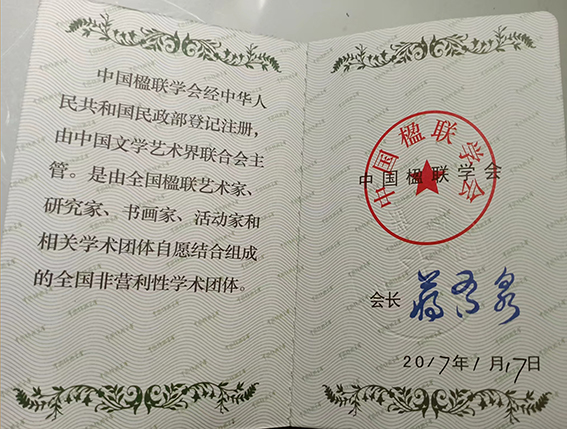 中国楹联学会经中华人
民共和国民政部登记注册，
由中国文学艺术界联合会主
管。是由全国楹联艺术家、
研究家、书画家、活动家和
相关学术团体自愿结合组成
的全国非营利性学术团体。
中国楹联学会
中国楹联学会
会长
2017年1月17日